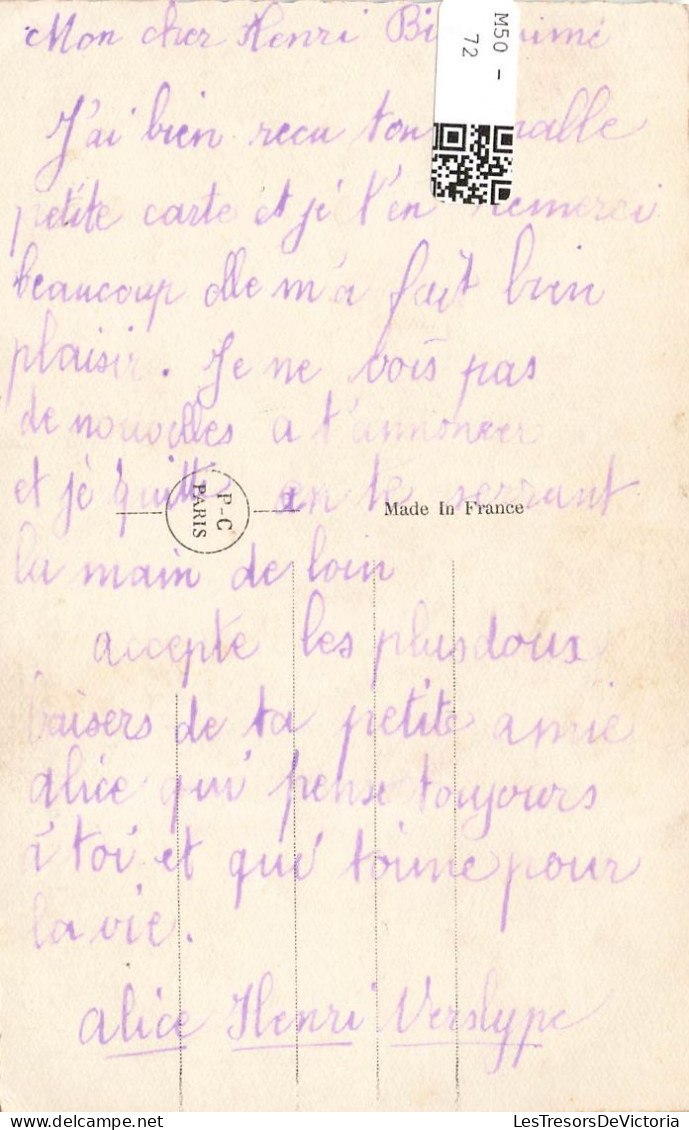 Mon cher Henri Bi aimé
M50 - 72
J'ai bien recu ton
petite carte et je t'en remerci
beaucoup elle m'a fait bien
plaisir. Je ne vois pas
de nouvelles a t'annoncer
et je quitte en te serrant
P-C
PARIS
Made In France
la main de loin
accepte les plus doux
baisers de ta petite amie
alice qui pense toujours
à toi et qui t'aime pour
la vie.
alice Henri Verslype
LesTresorsDeVictoria